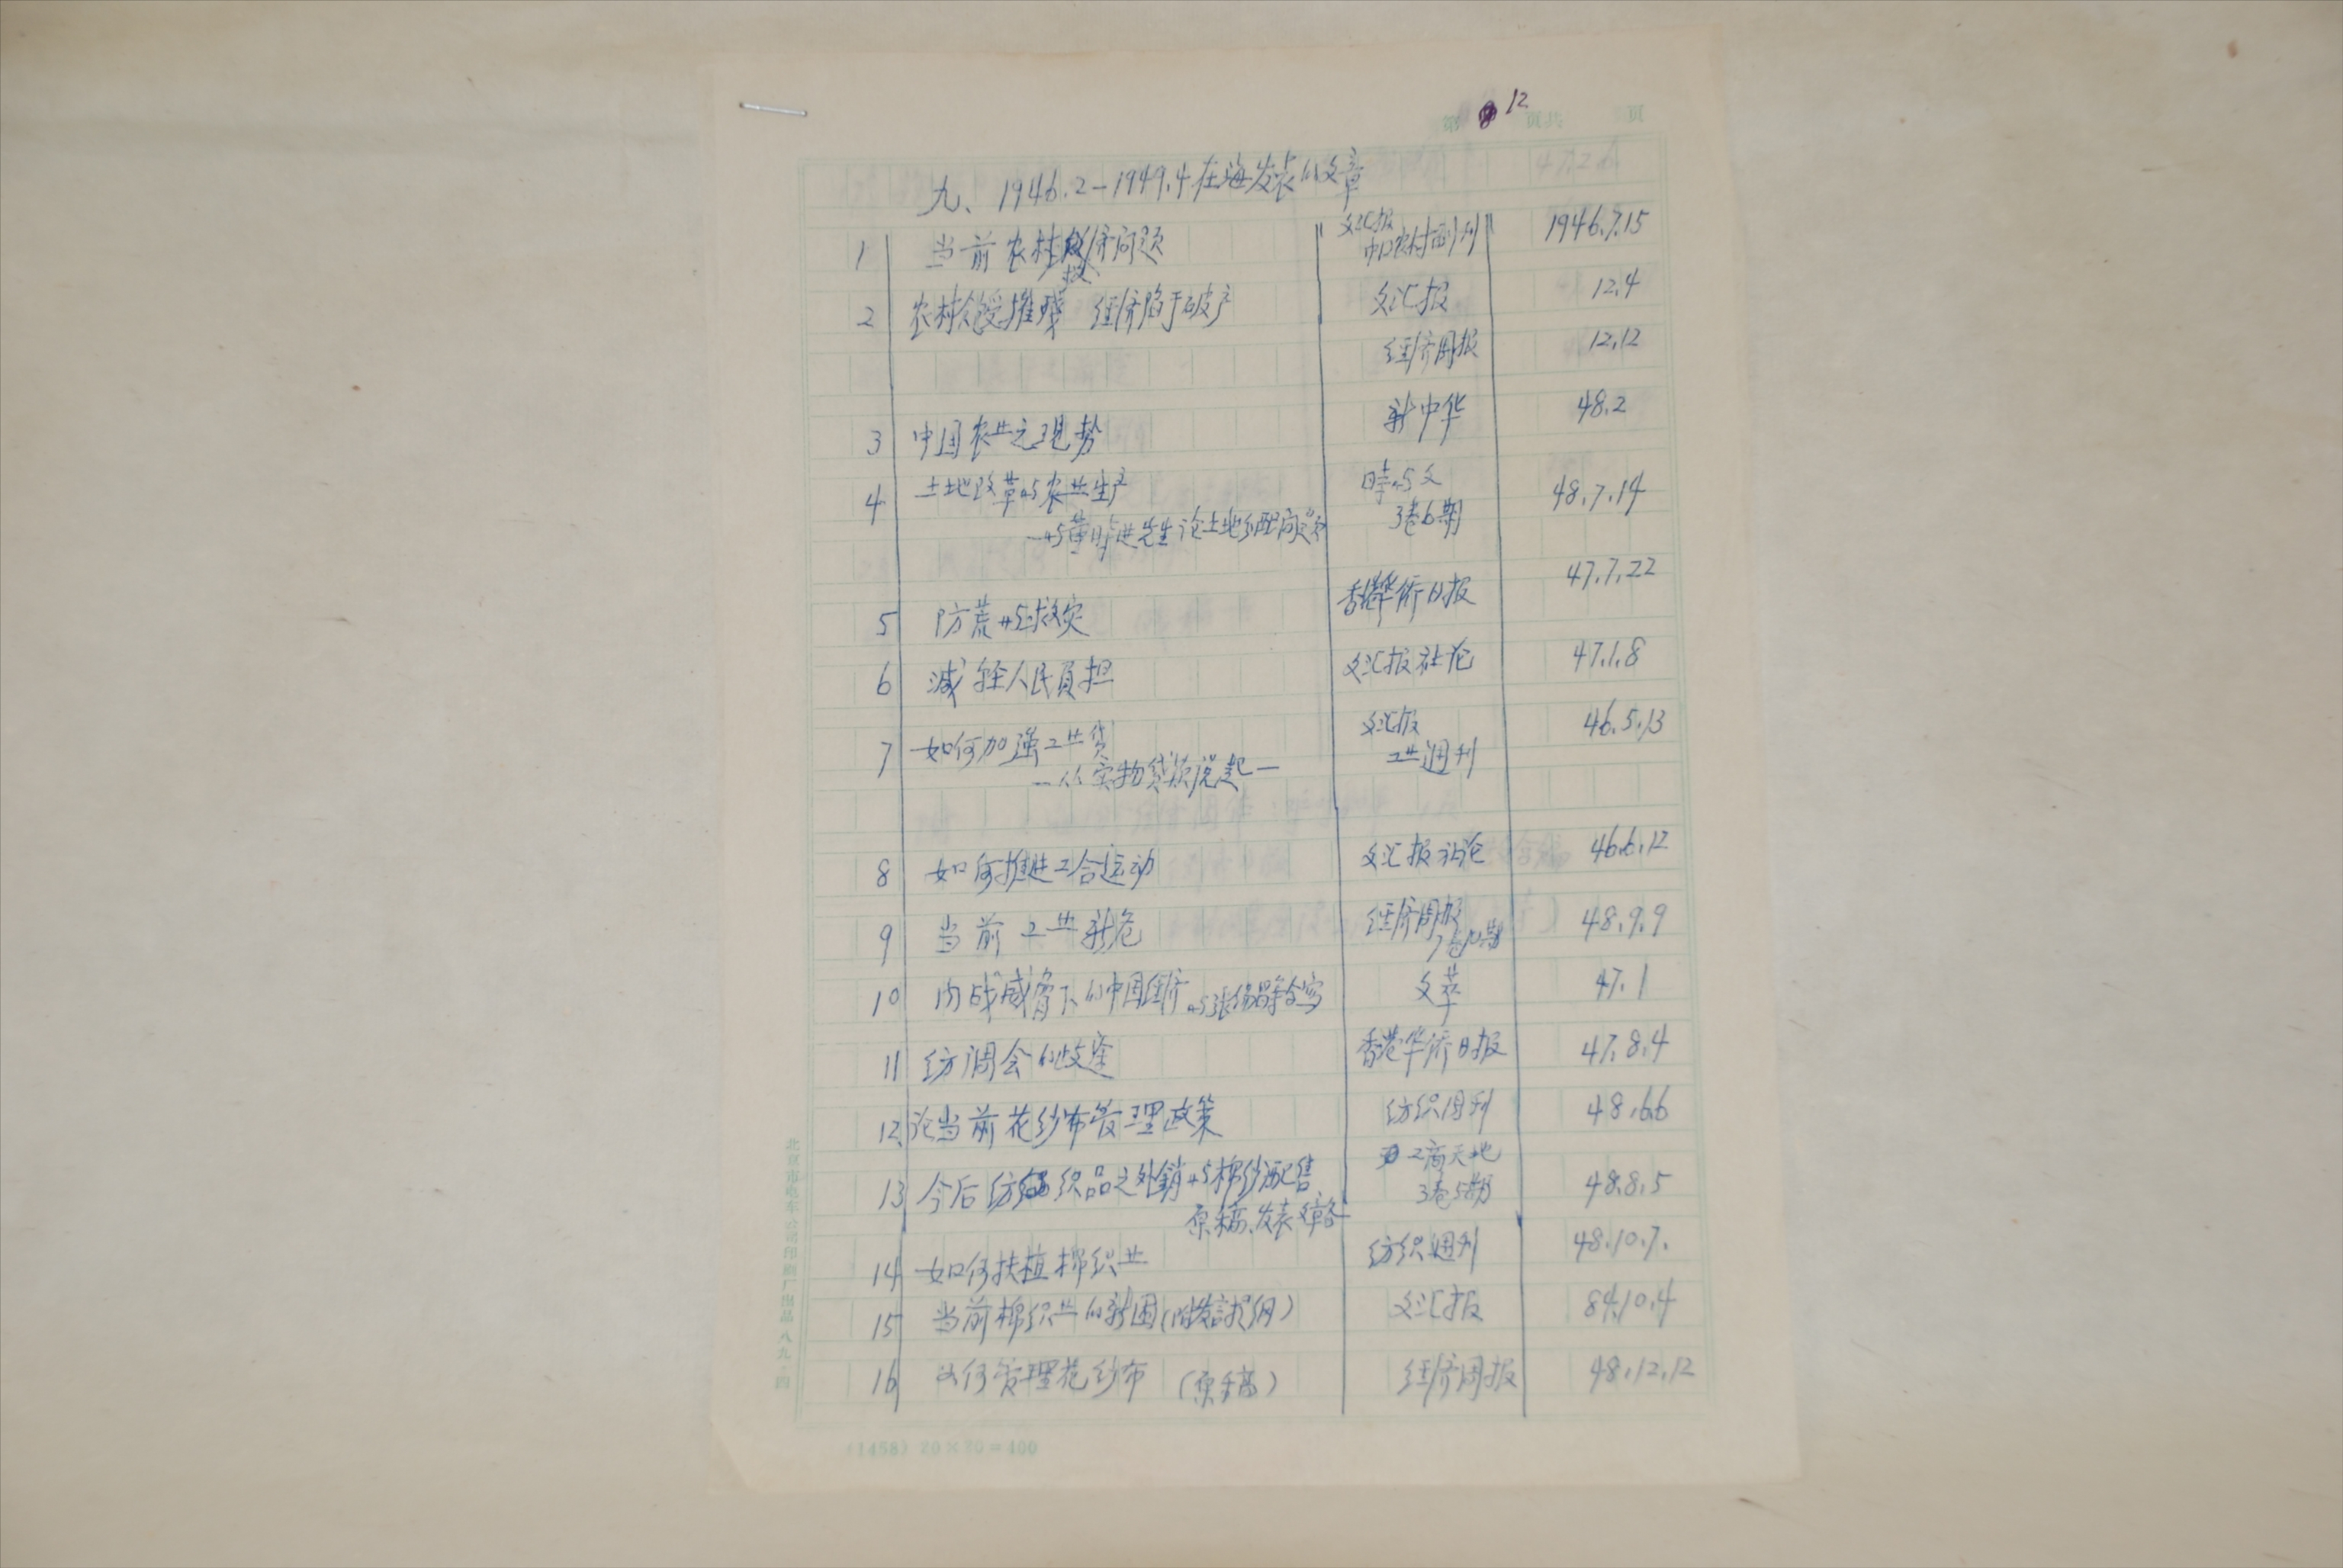 12
第 页 共 页
九、1946.2-1949.4在上海发表的文章
1 当前农村经济问题 文汇报 中国农村副刊 1946.7.15
2 农村饱受摧残 经济陷于破产 文汇报 12.4
经济周报 12.12
3 中国农业之现势 新中华 48.2
4 土地改革与农业生产 時与文 48.7.14
—与黄時进先生论土地分配问题 3卷6期
5 防荒与救灾 香港华侨日报 47.7.22
6 减轻人民負担 文汇报社论 47.1.8
7 如何加强工业贷 文汇报 46.5.13
—从实物贷款说起— 工业週刊
8 如何推进工合运动 文汇报社论 46.6.12
9 当前工业新危 经济周报 48.9.9
7卷 期
10 内战威脅下的中国经济 与张锡昌等合写 文萃 47.1
11 纺调会的歧途 香港华侨日报 47.8.4
12、论当前花纱布管理政策 纺织周刊 48.6.6
13 今后纺织品之外銷与棉纱配售 工商天地 3卷5期 48.8.5
原稿、发表文章各一
14 如何扶植棉织业 纺织週刊 48.10.7.
15 当前棉织业的新困(附发言提纲) 文汇报 84.10.4
16 如何管理花纱布 (原稿) 经济周报 48.12.12
北京市电车公司印刷厂出品 八九·四
(1458) 20×20=400